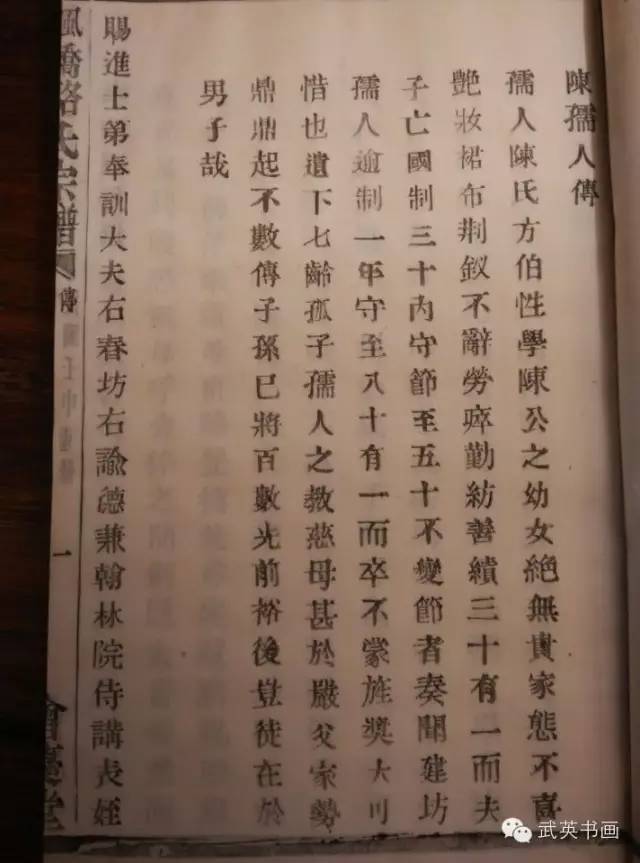 陳孺人傳
孺人陳氏方伯性學陳公之幼女絕無貴家態不喜
艷妝裙布荆釵不辭勞瘁勤紡善績三十有一而夫
子亡國制三十內守節至五十不變節者奏聞建坊
孺人逾制一年守至八十有一而卒不蒙旌獎大可
惜也遺下七齡孤子孺人之教慈母甚於嚴父家勢
鼎鼎起不數傳子孫已將百數光前裕後豈徒在於
男子哉
賜進士第奉訓大夫右春坊右諭德兼翰林院侍講表姪
楓橋駱氏宗譜
傳
一
會堂
武英书画